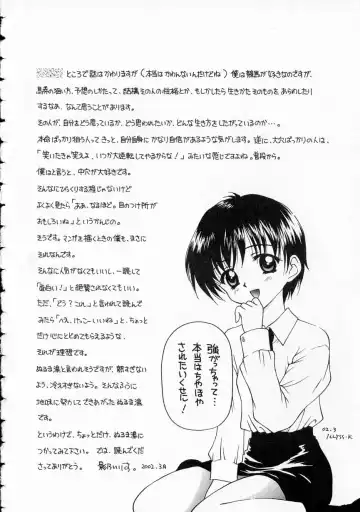 ところで話はかわりますが(本当はかわんないんだけどね)僕は競馬が好きなのですが、
馬券の狙い方、予想のしかたって、結構その人の性格とか、もしかしたら生きかたそのものをあらわしたり
するなあ、なんて思うことがあります。
その人が、自分をどう思っているか、どう思われたいか、どんな生き方をしたがっているのか…。
本命ばっかり狙う人ってきっと、自分自身にかなり自信があるような気がします。逆に、大穴ばっかりの人は、
「笑いたきゃ笑えよ、いつか大逆転してやるからな!」みたいな感じですよね。普段から。
僕はと言うと、中穴が大好きです。
そんなにてらくりする感じないけど
よくよく見たら「ああ、なるほど。目のつけ所が
おもしろいね」というかんじの。
そうです。マンガを描くときの僕も、まさに
それなんです。
そんなに人気がなくてもいいし、一読して
「面白い!」と絶賛されなくてもいい。
ただ、「どう?これ」と言って読んで
みたら「へえ、けっこーいいね」と、ちょっと
だけ心にとどめてもらえるような、
それが理想です。
ぬるま湯と言われそうですが、熱すぎない
よう、冷えすぎないよう、そんなふうに
地味に努力してできあがったぬるま湯
です。
というわけで、ちょっとだけ、ぬるま湯に
つかってみて下さい。では、読んでくだ
さってありがとう。
2002.3月
強がっちゃって…
本当はちやほや
されたいくせに!
02.3